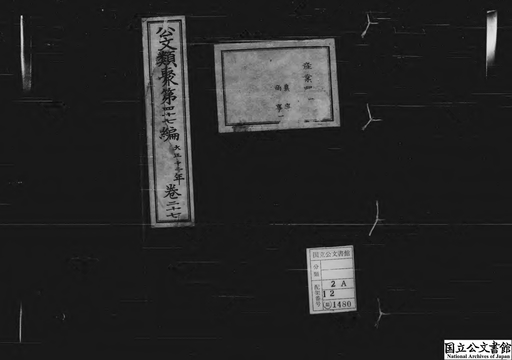 公文類聚第四十七編
大正十二年
巻二十七
産業四
農事
商事一
国立公文書館
分類
配架番号
2 A
12
類1480
国立公文書館
National Archives of Japan